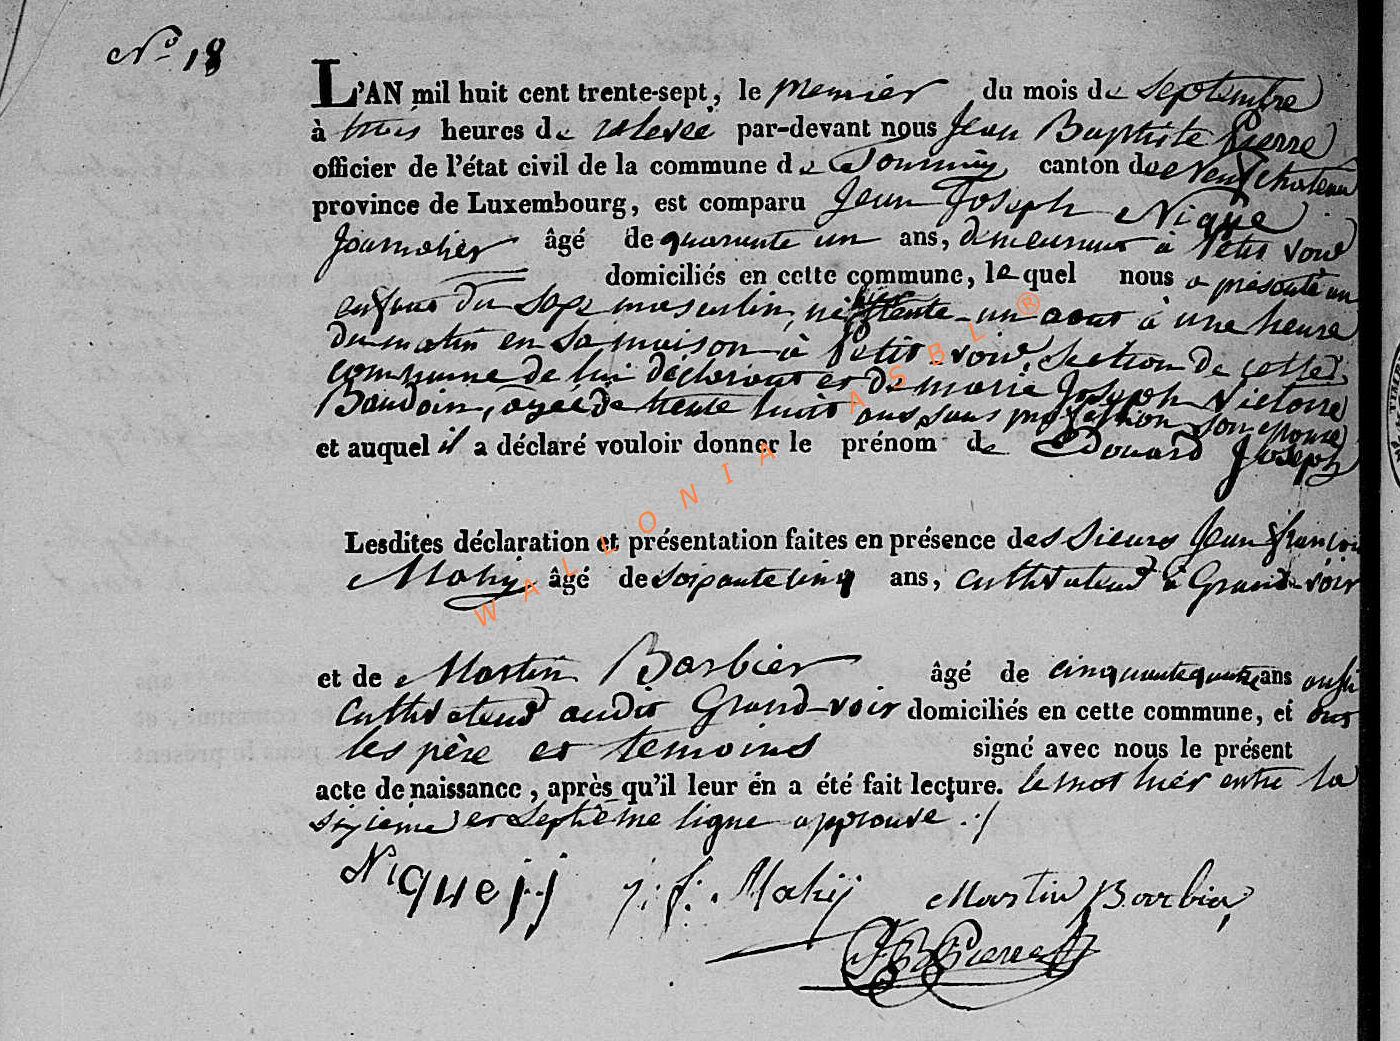 No 18
L'AN mil huit cent trente-sept, le premier du mois de septembre
à trois heures de relevée par-devant nous Jean Baptiste Pierre
officier de l'état civil de la commune de Tournay canton de Neufchateau
province de Luxembourg, est comparu Jean Joseph Nique
journalier âgé de quarante un ans, demeurant à Petit voir
domiciliés en cette commune, lequel nous a présenté un
enfant du sexe masculin, né hier trente-un aout à une heure
du matin en sa maison à Petit-voir section de cette
commune de lui déclarant et de marie Joseph Victoire
Baudoin, agée de trente huit ans sans profession son epouse
et auquel il a déclaré vouloir donner le prénom de Edouard Joseph
Lesdites déclaration et présentation faites en présence des sieurs Jean françois
Mahy âgé de soixante cinq ans, cultivateur à Grand-voir
et de Martin Barbier âgé de cinquante quatre ans aussi
cultivateur audit Grand-voir domiciliés en cette commune, et ont
les père et temoins signé avec nous le présent
acte de naissance, après qu'il leur en a été fait lecture. le mot hier entre la
sixieme et septième ligne approuvé ./
Nique j j j: f: Mahij Martin Barbier
JB Pierre
WALLONIA ASBL ®